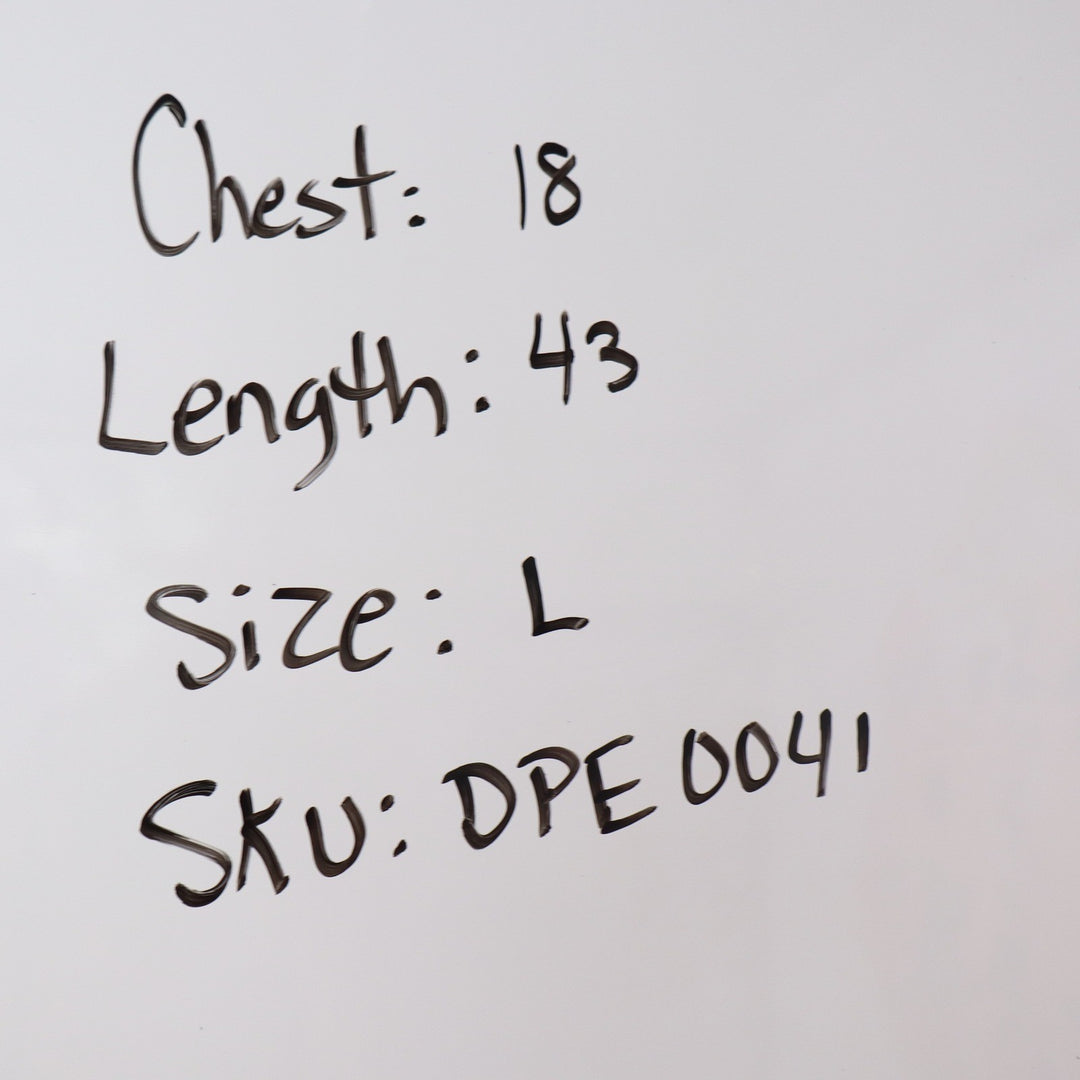 Chest: 18
Length: 43
Size: L
SKU: DPE 0041